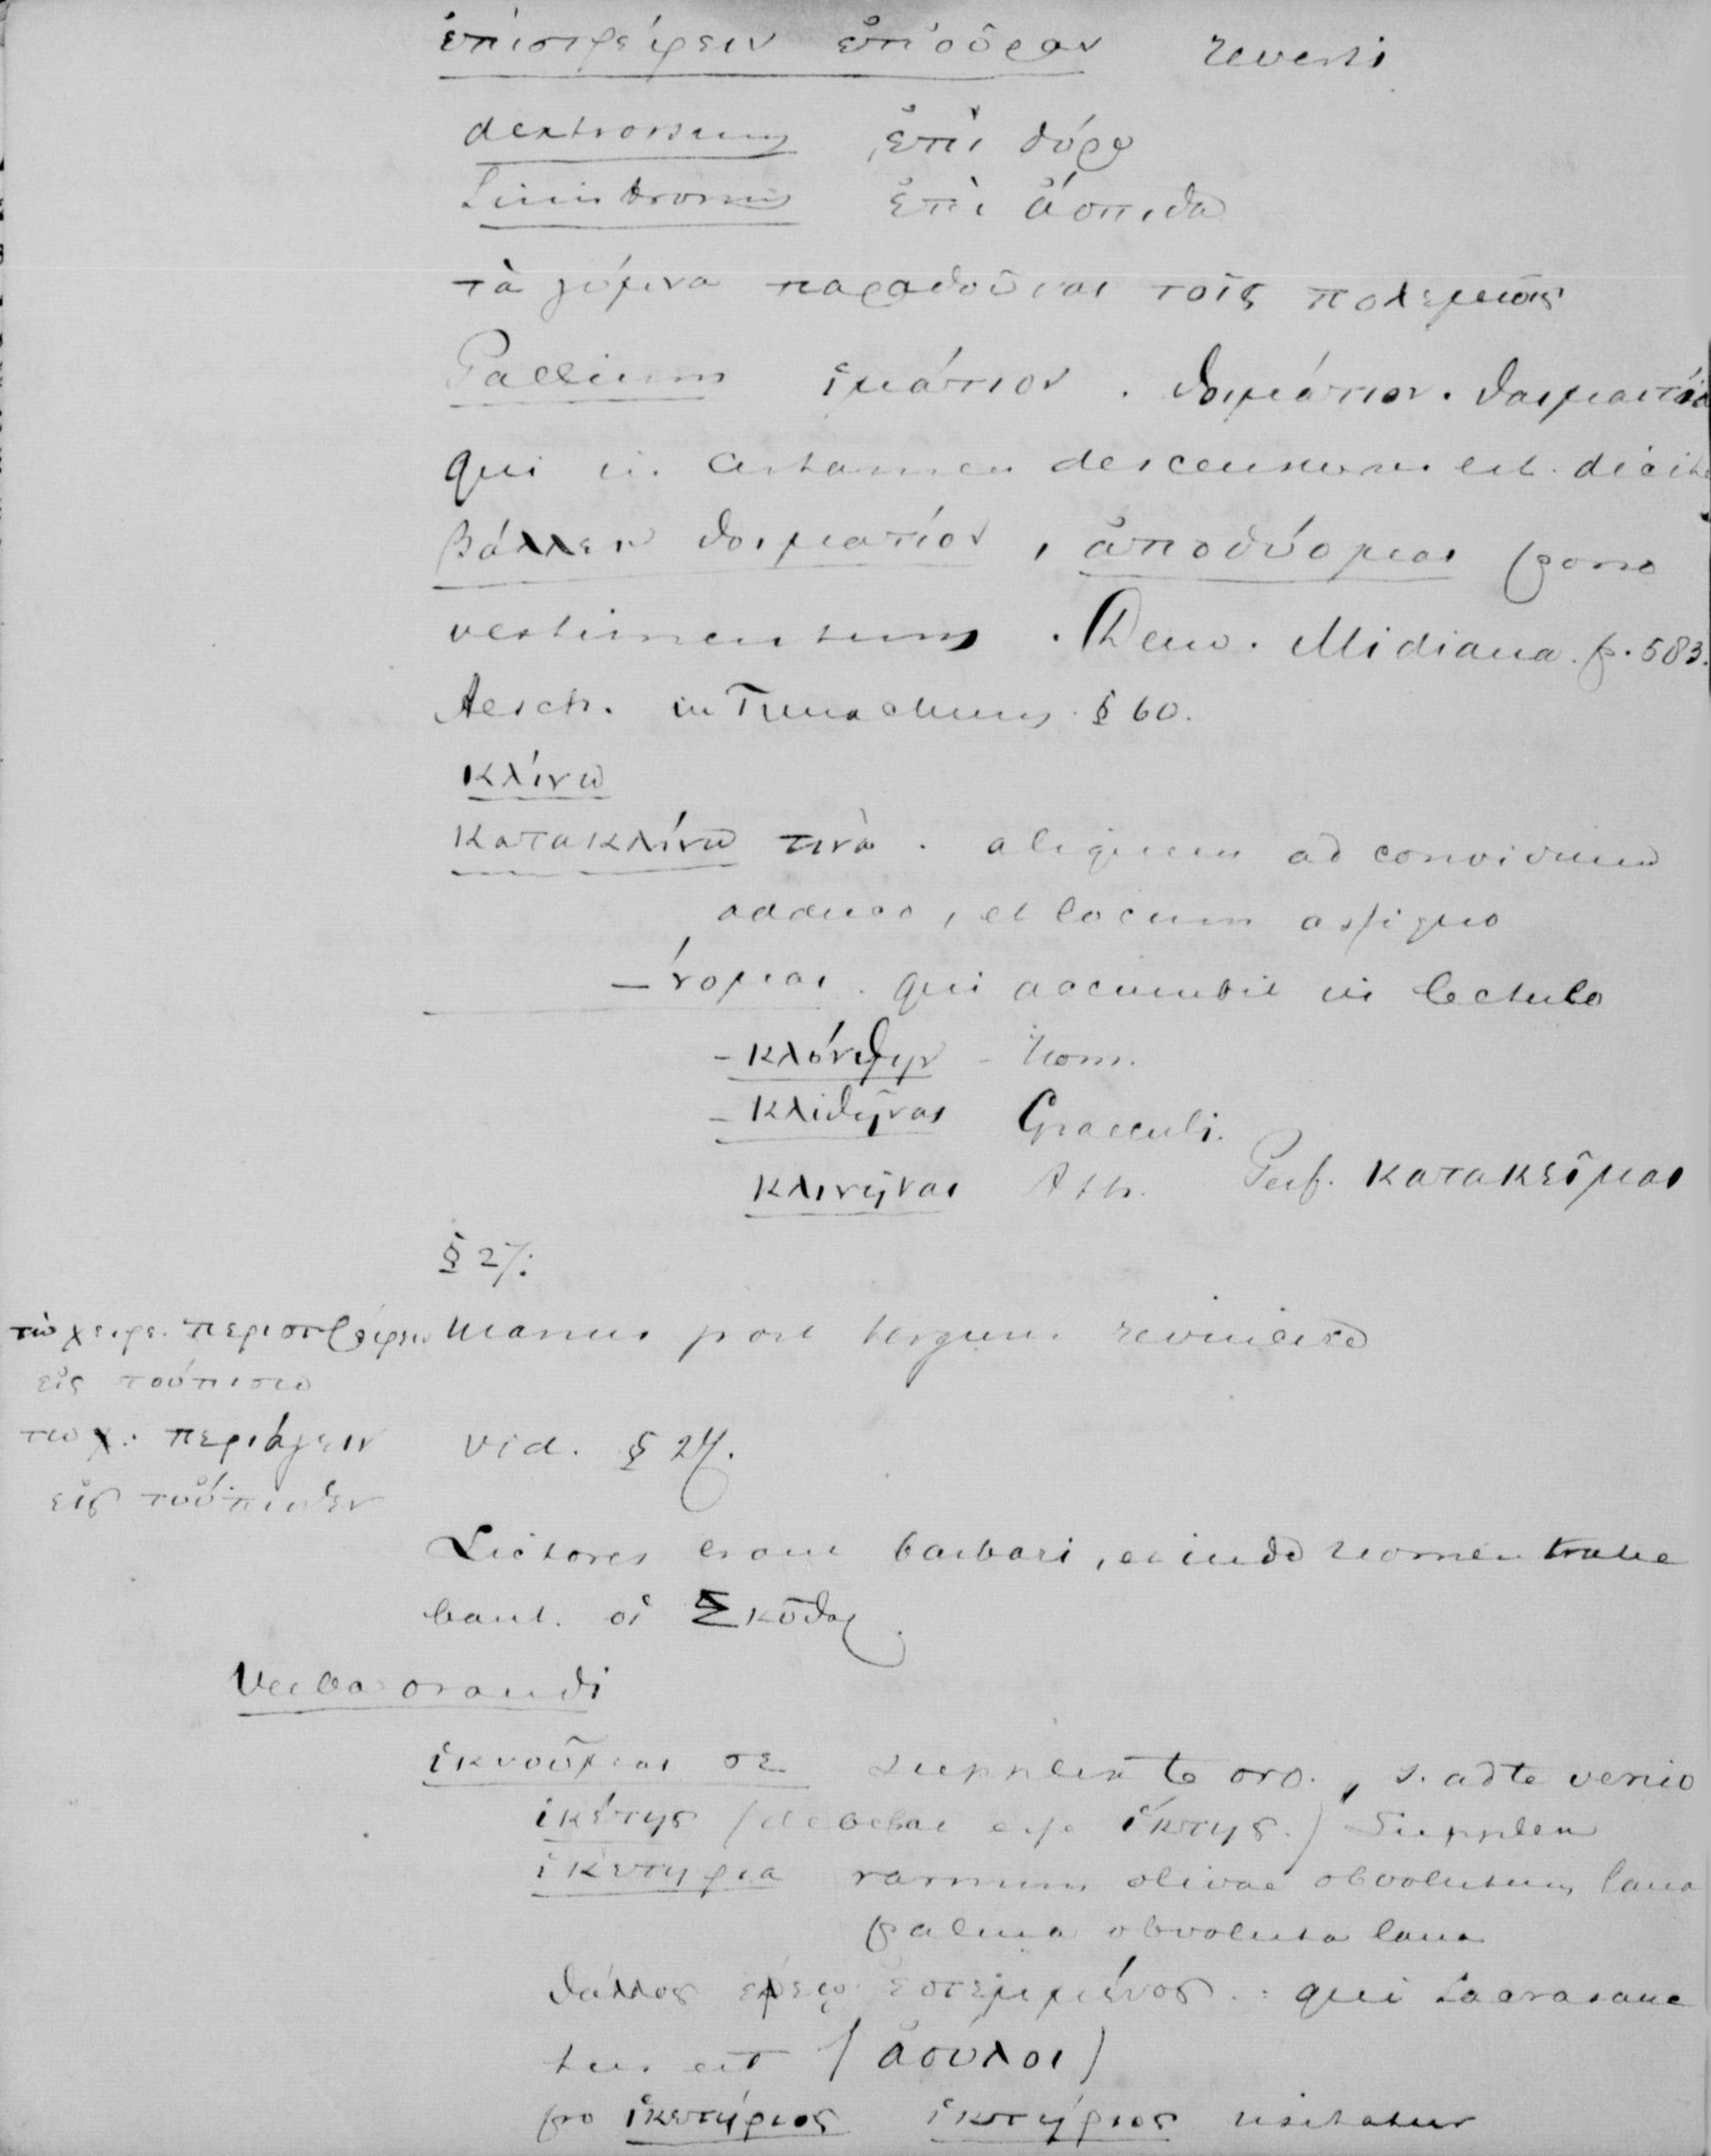 ἐπιστρέφειν ἐπ' οὐρὰν reverti
dextrorsum ἐπὶ δόρυ
Sinistrorsum ἐπὶ ἀσπίδα
τὰ γύμνα παραδοῦναι τοῖς πολεμίοις
Pallium ἱμάτιον . θοιμάτιον . θαιμάτια
qui in certamen descensurus est dicit
βάλλειν θοιμάτιον , ἀποδύομαι pono
vestimentum . Dem. Midiana p. 583.
Aesch. in Timarchum § 60.
κλίνω
κατακλίνω τινὰ . aliquem ad convivium
adduco , et locum assigno
– ίνομαι . qui accumbit in lectulo
– κλίνθην – hom.
– κλιθῆναι Graeculi.
κλινῆναι Ath. Perf. κατακεῖμαι
§ 27:
τὼ χεῖρε περιστρέφειν manus post tergum revincire
εἰς τοὐπίσω
τω χ. περιάγειν vid. § 27.
εἰς τοὔπισθεν
Lictores erant barbari, et inde nomen trahe
bant. οἱ Σκύθαι.
Verba orandi
ἱκνοῦμαι σε supplex te oro. , s. ad te venio
ἱκέτης (debebat esse ἵκτης.) Supplex
ἱκετηρια ramum olivae obvolutum lana
palma obvoluta lana
θάλλος ἐρέῳ ἐστεμμένος . : qui sacrosanc
tus est (ἄσυλοι)
pro ἱκετήριος ἱκτήριος usitatur